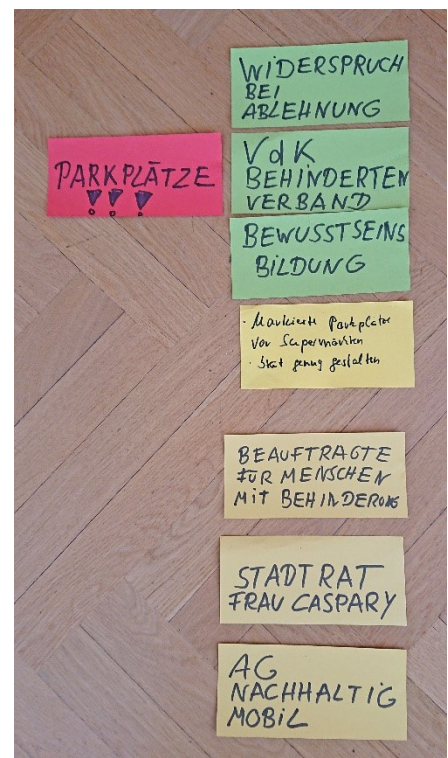 PARKPLÄTZE
!!!
WIDERSPRUCH
BEI
ABLEHNUNG
VdK
BEHINDERTEN
VERBAND
BEWUSSTSEINS
BILDUNG
· Markierte Parkplätze
vor Supermärkten
· genug gestalten
BEAUFTRAGTE
FÜR MENSCHEN
MIT BEHINDERUNG
STADTRAT
FRAU CASPARY
AG
NACHHALTIG
MOBIL